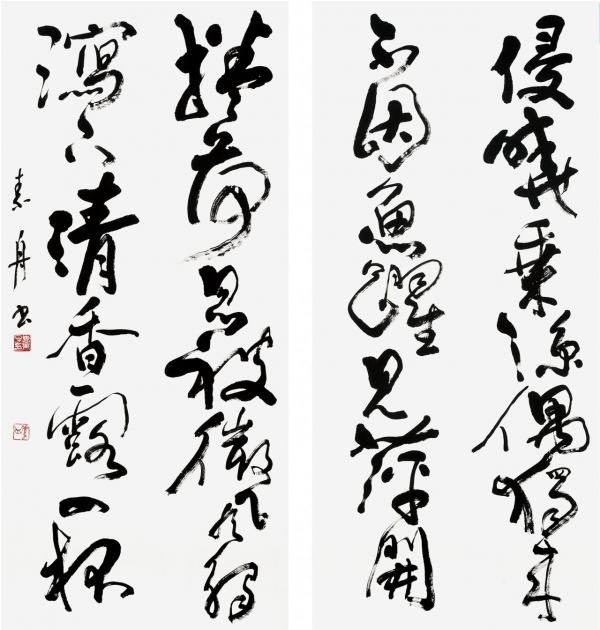 侵曉乘涼偶獨來
不因魚躍見萍開
捲荷忽被微風觸
瀉下清香露一杯
素舟书